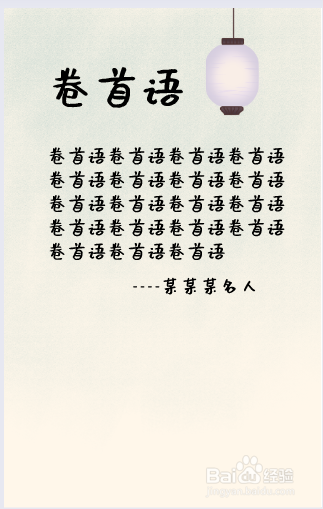 卷首语
卷首语卷首语卷首语卷首语
卷首语卷首语卷首语卷首语
卷首语卷首语卷首语卷首语
卷首语卷首语卷首语卷首语
卷首语卷首语卷首语
----某某某名人
Baidu经验
jingyan.baidu.com